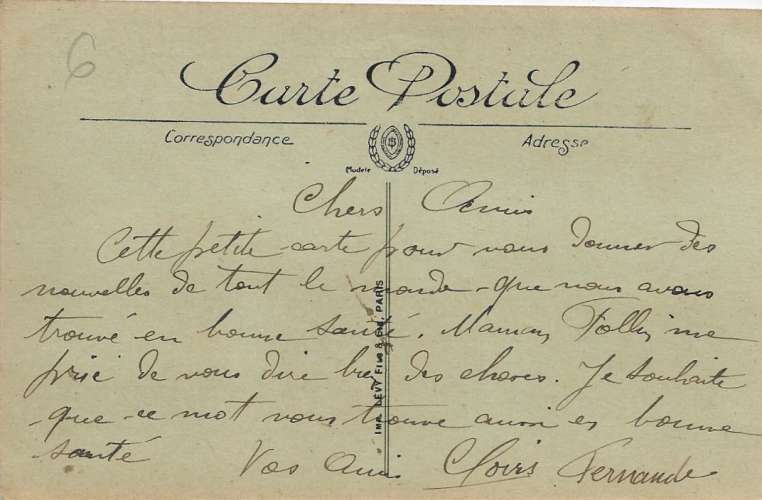 6
Carte Postale
Correspondance
Adresse
Modèle Déposé
Chers Amis
Cette petite carte pour vous donner des
nouvelles de tout le monde que nous avons
trouvé en bonne santé. Maman me
prie de vous dire bien des choses. Je souhaite
que ce mot vous trouve aussi en bonne
santé Vos Amis Clovis Fernande
IMP. LÉVY FILS & CIE PARIS